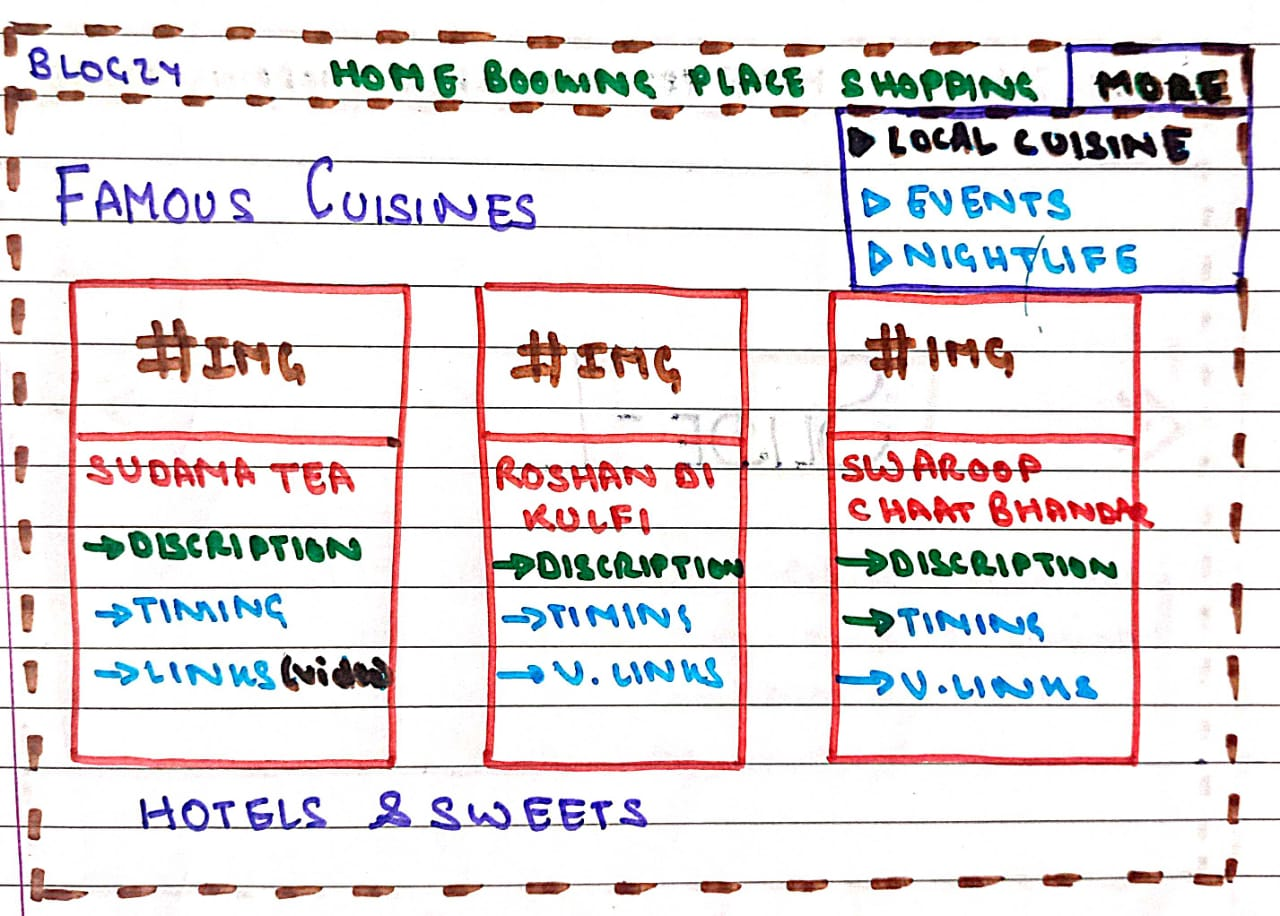 BLOGZY HOME BOOKING PLACE SHOPPING MORE
▷ LOCAL CUISINE
▷ EVENTS
▷ NIGHTLIFE
FAMOUS CUISINES
#IMG
SUDAMA TEA
→DISCRIPTION
→TIMING
→LINKS (video)
#IMG
ROSHAN DI
KULFI
→DISCRIPTION
→TIMING
→V. LINKS
#IMG
SWAROOP
CHAAT BHANDAR
→DISCRIPTION
→TIMING
→V. LINKS
HOTELS & SWEETS